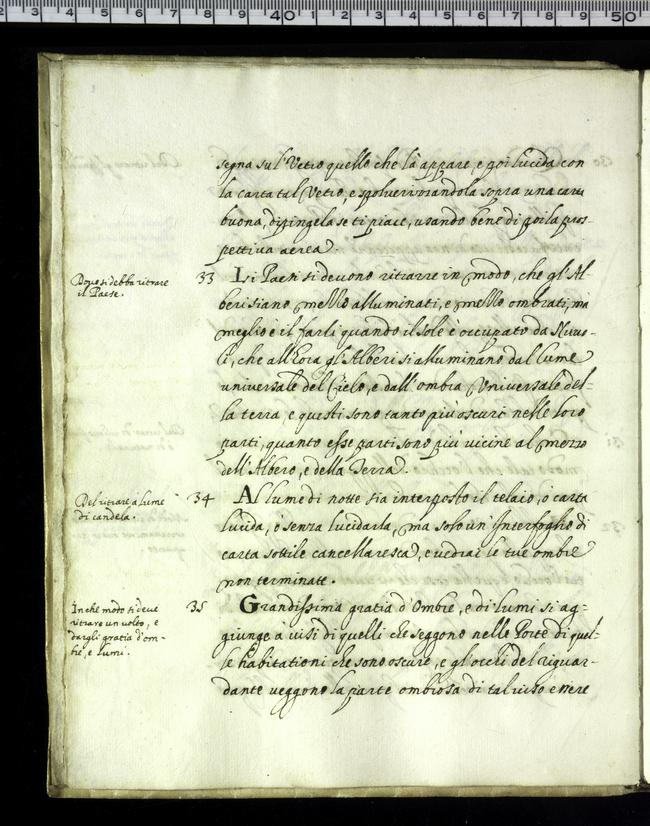 segna sul Vetro quello che là appare, e poi lucida con
la carta tal Vetro, e spolverizandola sopra una carta
buona, dipingela se ti piace, usando bene di poi la pros-
pettiva aerea.
Dove si debba ritrare
il Paese.
33 Li Paesi si devono ritrarre in modo, che gl'Al-
beri siano mezzo alluminati, e mezzo ombrati, ma
meglio è il farli quando il Sole è occupato da Nuvo-
li, che all'hora gl'Alberi si alluminano dal lume
universale del Cielo, e dall'ombra Universale del-
la terra, e questi sono tanto più oscuri nelle loro
parti, quanto esse parti sono più vicine al mezzo
dell'Albero, e della Terra.
Del ritrare a lume
di candela.
34 Al lume di notte sia interposto il telaio, ò carta
lucida, ò senza lucidarla, ma solo un' Interfoglio di
carta sottile cancellaresca, e vedrai le tue ombre
non terminate.
In che modo si deve
ritrare un volto, e
dargli gratia d'om-
bre, e lumi.
35 Grandissima gratia d'Ombre, e di lumi si ag-
giunge a visi di quelli che seggono nelle Porte di quel-
le habitationi che sono oscure, e gl'occhi del riguar-
dante veggono la parte ombrosa di tal viso essere